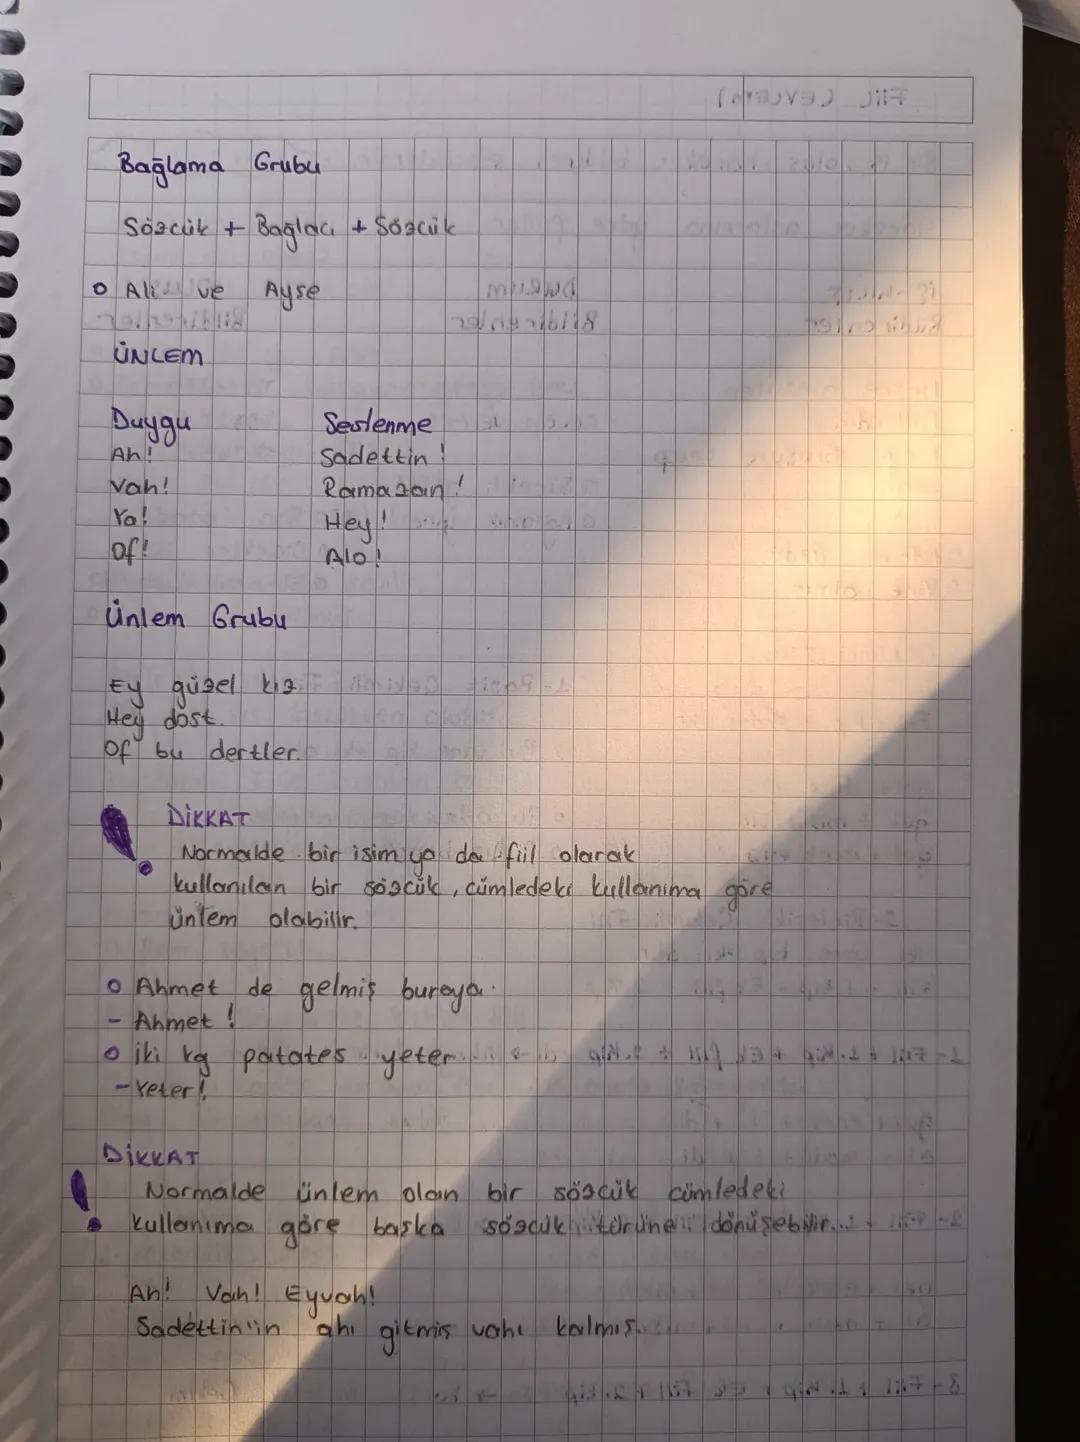 Bağlama Grubu
Sözcük + Bağlacı + Sözcük
o Ali ve Ayşe
ÜNLEM
Duygu Seslenme
Ah! Sadettin!
Vah! Ramazan!
Ya! Hey!
Of! Alo!
Ünlem Grubu
Ey güzel kız.
Hey dost.
Of bu dertler.
DİKKAT
! Normalde bir isim ya da fiil olarak
kullanılan bir sözcük, cümledeki kullanıma göre
ünlem olabilir.
o Ahmet de gelmiş buraya.
- Ahmet!
o iki kg patates yeter
- Yeter!
DİKKAT
! Normalde ünlem olan bir sözcük cümledeki
kullanıma göre başka sözcük türüne dönüşebilir...
Ah! Vah! Eyvah!
Sadettin'in ahı gitmiş vahı kalmış.